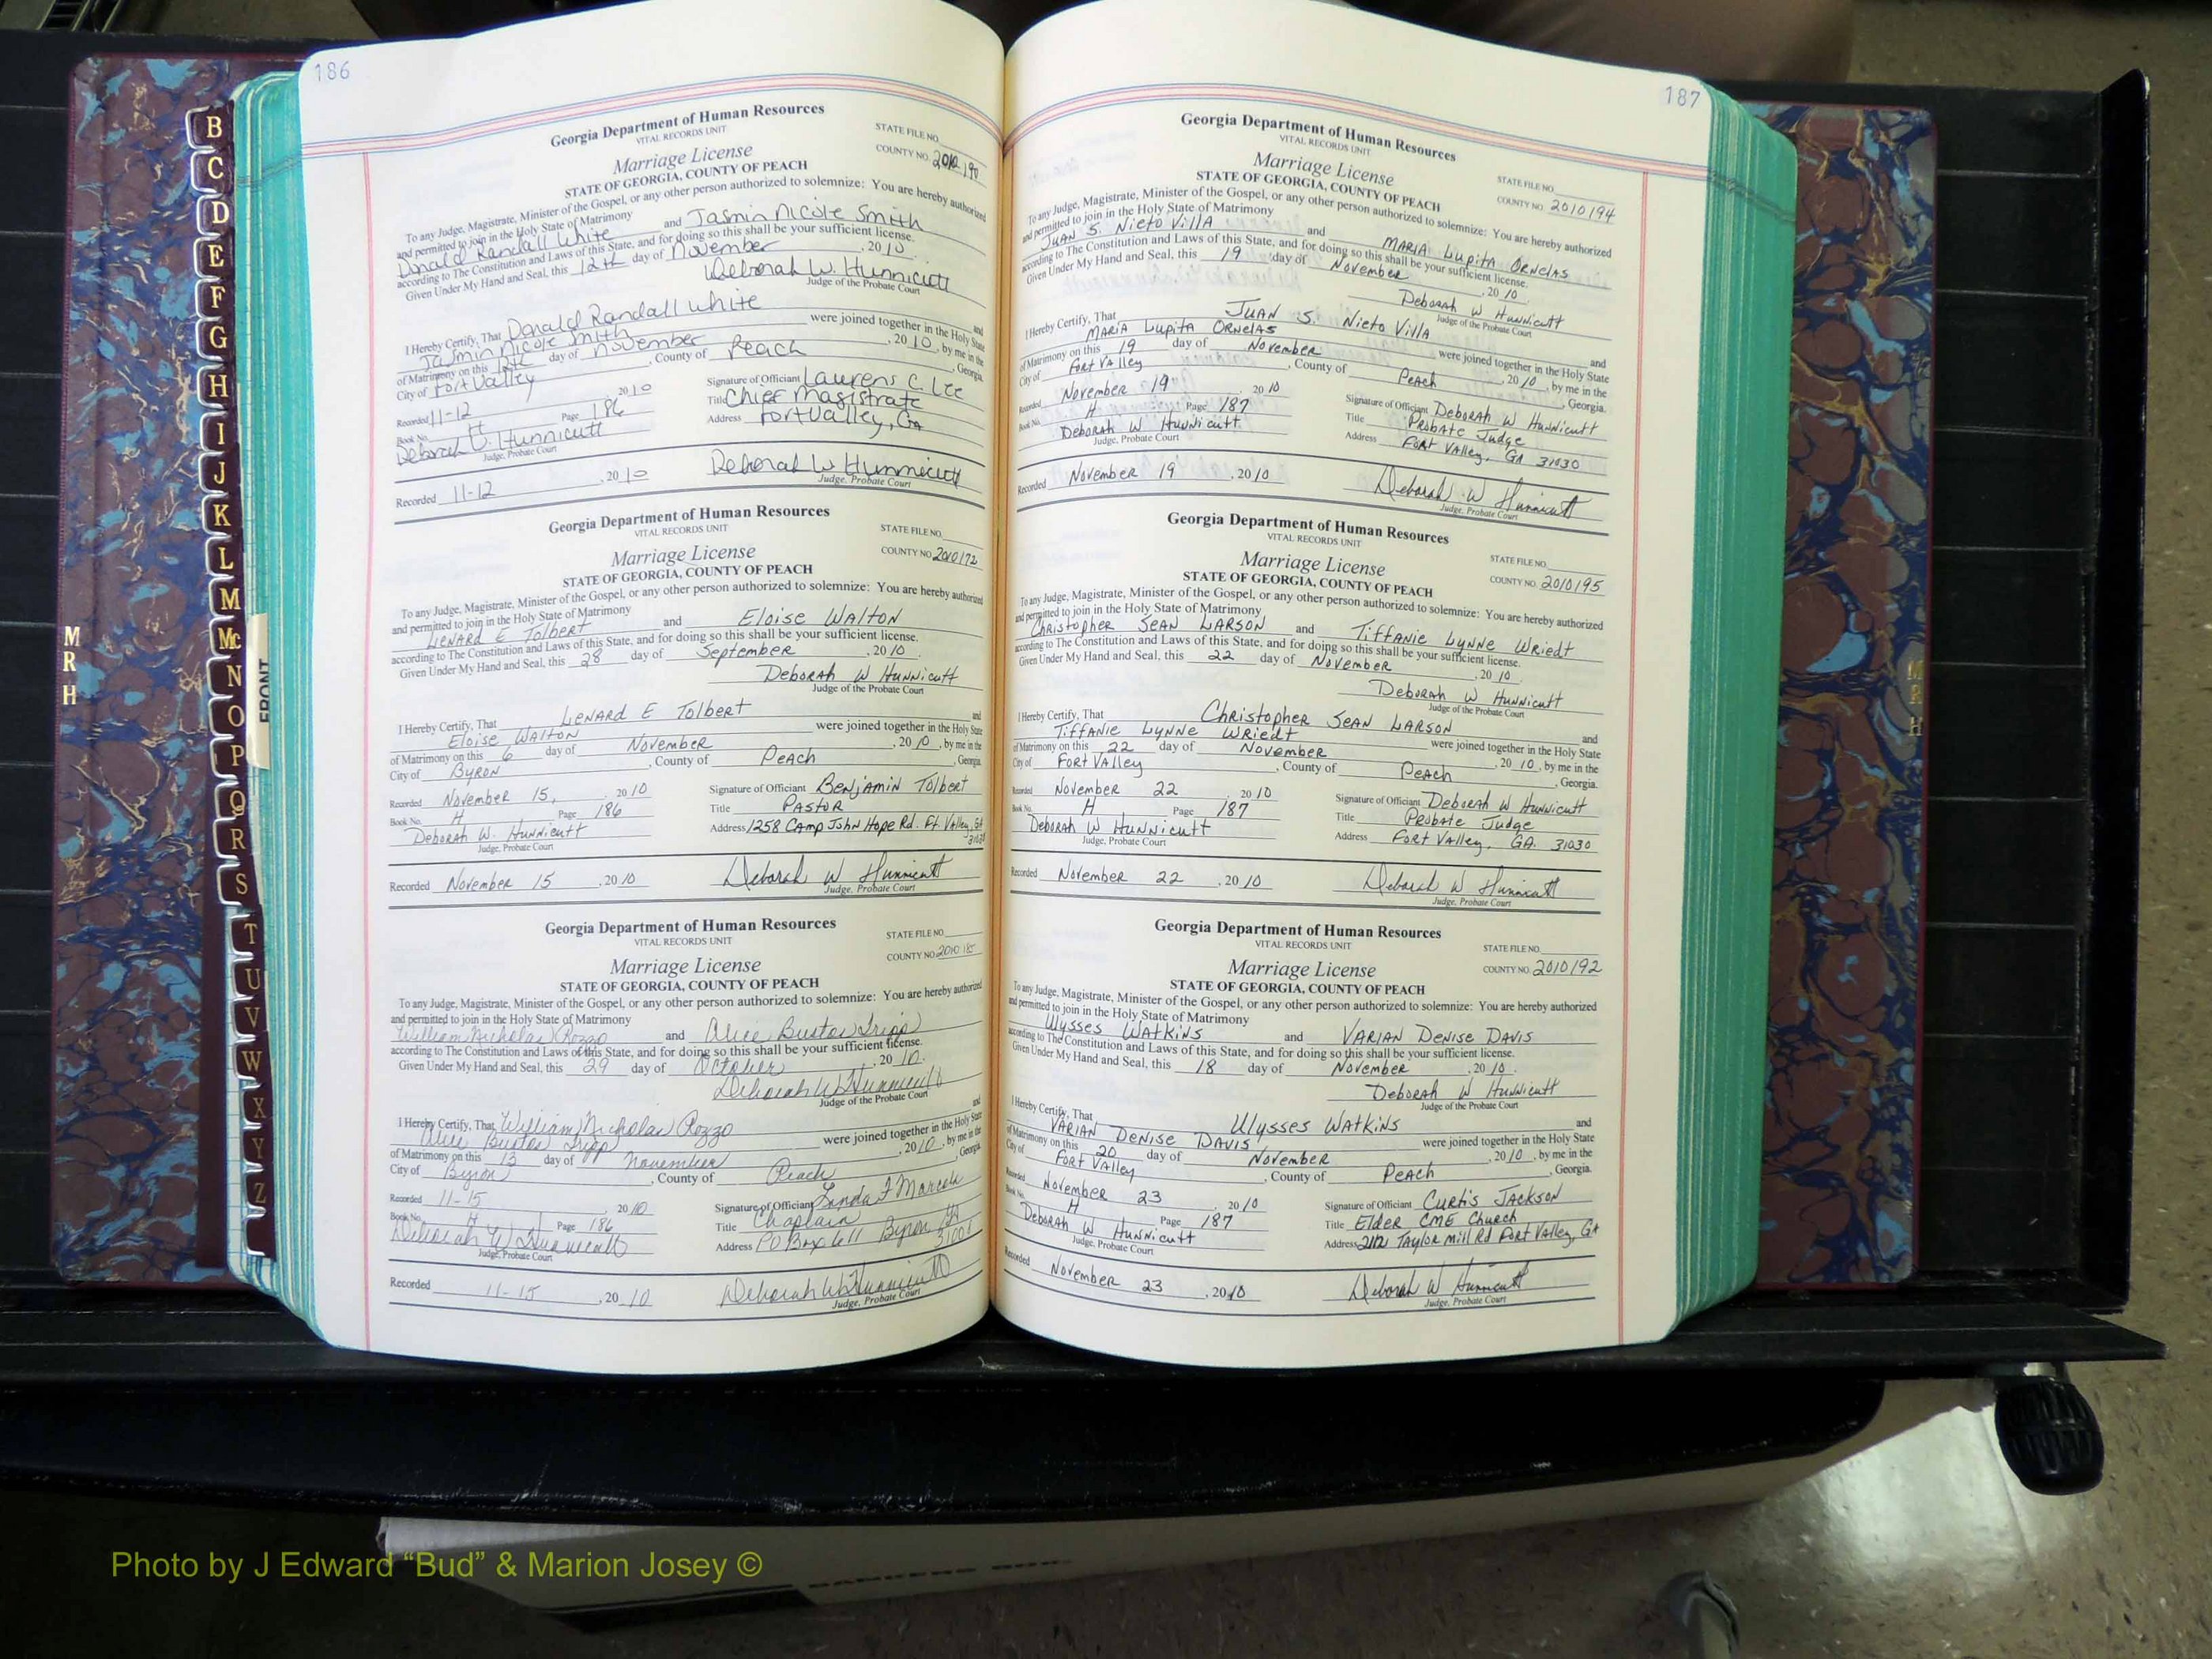 186
Georgia Department of Human Resources
VITAL RECORDS UNIT
STATE FILE NO.
Marriage License
COUNTY NO. 2010190
STATE OF GEORGIA, COUNTY OF PEACH
To any Judge, Magistrate, Minister of the Gospel, or any other person authorized to solemnize: You are hereby authorized
and permitted to join in the Holy State of Matrimony
Donald Randall White and Jasmin Nicole Smith
according to The Constitution and Laws of this State, and for doing so this shall be your sufficient license.
Given Under My Hand and Seal, this 12th day of November, 2010
Deborah W. Hunnicutt
Judge of the Probate Court
I Hereby Certify, That Donald Randall White and
Jasmin Nicole Smith were joined together in the Holy State
of Matrimony on this 12th day of November, 2010, by me in the
City of Fort Valley, County of Peach, Georgia.
Recorded 11-12 2010 Signature of Officiant Laurens C. Lee
Book No. H Page 186 Title Chief Magistrate
Deborah W. Hunnicutt Address Fort Valley, Ga
Judge, Probate Court
Recorded 11-12, 2010 Deborah W Hunnicutt
Judge, Probate Court
Georgia Department of Human Resources
VITAL RECORDS UNIT
STATE FILE NO.
Marriage License
COUNTY NO. 2010172
STATE OF GEORGIA, COUNTY OF PEACH
To any Judge, Magistrate, Minister of the Gospel, or any other person authorized to solemnize: You are hereby authorized
and permitted to join in the Holy State of Matrimony
Lenard E Tolbert and Eloise Walton
according to The Constitution and Laws of this State, and for doing so this shall be your sufficient license.
Given Under My Hand and Seal, this 28 day of September, 2010
Deborah W Hunnicutt
Judge of the Probate Court
I Hereby Certify, That Lenard E Tolbert and
Eloise Walton were joined together in the Holy State
of Matrimony on this 6 day of November, 2010, by me in the
City of Byron, County of Peach, Georgia.
Recorded November 15, 2010 Signature of Officiant Benjamin Tolbert
Book No. H Page 186 Title Pastor
Deborah W. Hunnicutt Address 1258 Camp John Hope Rd. Ft Valley, GA 31030
Judge, Probate Court
Recorded November 15, 2010 Deborah W Hunnicutt
Judge, Probate Court
Georgia Department of Human Resources
VITAL RECORDS UNIT
STATE FILE NO.
Marriage License
COUNTY NO.
STATE OF GEORGIA, COUNTY OF PEACH
To any Judge, Magistrate, Minister of the Gospel, or any other person authorized to solemnize: You are hereby authorized
and permitted to join in the Holy State of Matrimony
William Nicholas Rozzo and Alice Bustos Tripp
according to The Constitution and Laws of this State, and for doing so this shall be your sufficient license.
Given Under My Hand and Seal, this 29 day of October, 2010.
Deborah W Hunnicutt
Judge of the Probate Court
I Hereby Certify, That William Nicholas Rozzo and
Alice Bustos Tripp were joined together in the Holy State
of Matrimony on this 13 day of November, 2010, by me in the
City of Byron, County of Peach, Georgia
Recorded 11-15 2010 Signature of Officiant Linda F
Book No. H Page 186 Title Chaplain
Deborah W Hunnicutt Address PO Box 611 Byron Ga
Judge, Probate Court
Recorded 11-15, 2010 Deborah W Hunnicutt
Judge, Probate Court
187
Georgia Department of Human Resources
VITAL RECORDS UNIT
Marriage License
STATE FILE NO.
STATE OF GEORGIA, COUNTY OF PEACH
COUNTY NO. 2010194
To any Judge, Magistrate, Minister of the Gospel, or any other person authorized to solemnize: You are hereby authorized
and permitted to join in the Holy State of Matrimony
Juan S. Nieto Villa and Maria Lupita Ornelas
according to The Constitution and Laws of this State, and for doing so this shall be your sufficient license.
Given Under My Hand and Seal, this 19 day of November, 2010
Deborah W Hunnicutt
Judge of the Probate Court
I Hereby Certify, That Juan S. Nieto Villa and
Maria Lupita Ornelas were joined together in the Holy State
of Matrimony on this 19 day of November, 2010, by me in the
City of Fort Valley, County of Peach, Georgia.
Recorded November 19 2010 Signature of Officiant Deborah W Hunnicutt
Book No. H Page 187 Title Probate Judge
Deborah W Hunnicutt Address Fort Valley, GA 31030
Judge, Probate Court
Recorded November 19, 2010 Deborah W Hunnicutt
Judge, Probate Court
Georgia Department of Human Resources
VITAL RECORDS UNIT
STATE FILE NO.
Marriage License
COUNTY NO. 2010195
STATE OF GEORGIA, COUNTY OF PEACH
To any Judge, Magistrate, Minister of the Gospel, or any other person authorized to solemnize: You are hereby authorized
and permitted to join in the Holy State of Matrimony
Christopher Sean Larson and Tiffanie Lynne Wriedt
according to The Constitution and Laws of this State, and for doing so this shall be your sufficient license.
Given Under My Hand and Seal, this 22 day of November, 2010
Deborah W Hunnicutt
Judge of the Probate Court
I Hereby Certify, That Christopher Sean Larson and
Tiffanie Lynne Wriedt were joined together in the Holy State
of Matrimony on this 22 day of November, 2010, by me in the
City of Fort Valley, County of Peach, Georgia.
Recorded November 22 2010 Signature of Officiant Deborah W Hunnicutt
Book No. H Page 187 Title Probate Judge
Deborah W Hunnicutt Address Fort Valley, GA. 31030
Judge, Probate Court
Recorded November 22, 2010 Deborah W Hunnicutt
Judge, Probate Court
Georgia Department of Human Resources
VITAL RECORDS UNIT
STATE FILE NO.
Marriage License
COUNTY NO. 2010192
STATE OF GEORGIA, COUNTY OF PEACH
To any Judge, Magistrate, Minister of the Gospel, or any other person authorized to solemnize: You are hereby authorized
and permitted to join in the Holy State of Matrimony
Ulysses Watkins and Varian Denise Davis
according to The Constitution and Laws of this State, and for doing so this shall be your sufficient license.
Given Under My Hand and Seal, this 18 day of November, 2010
Deborah W Hunnicutt
Judge of the Probate Court
I Hereby Certify, That Ulysses Watkins and
Varian Denise Davis were joined together in the Holy State
of Matrimony on this 20 day of November, 2010, by me in the
City of Fort Valley, County of Peach, Georgia.
Recorded November 23 2010 Signature of Officiant Curtis Jackson
Book No. H Page 187 Title Elder CME Church
Deborah W Hunnicutt Address 2112 Taylor Mill Rd Fort Valley, GA
Judge, Probate Court
Recorded November 23, 2010 Deborah W Hunnicutt
Judge, Probate Court
B
C
D
E
F
G
H
I
J
K
L
M
Mc
N
O
P
Q
R
S
T
U
V
W
X
Y
Z
FRONT
M
R
H
M
R
H
Photo by J Edward “Bud” & Marion Josey ©